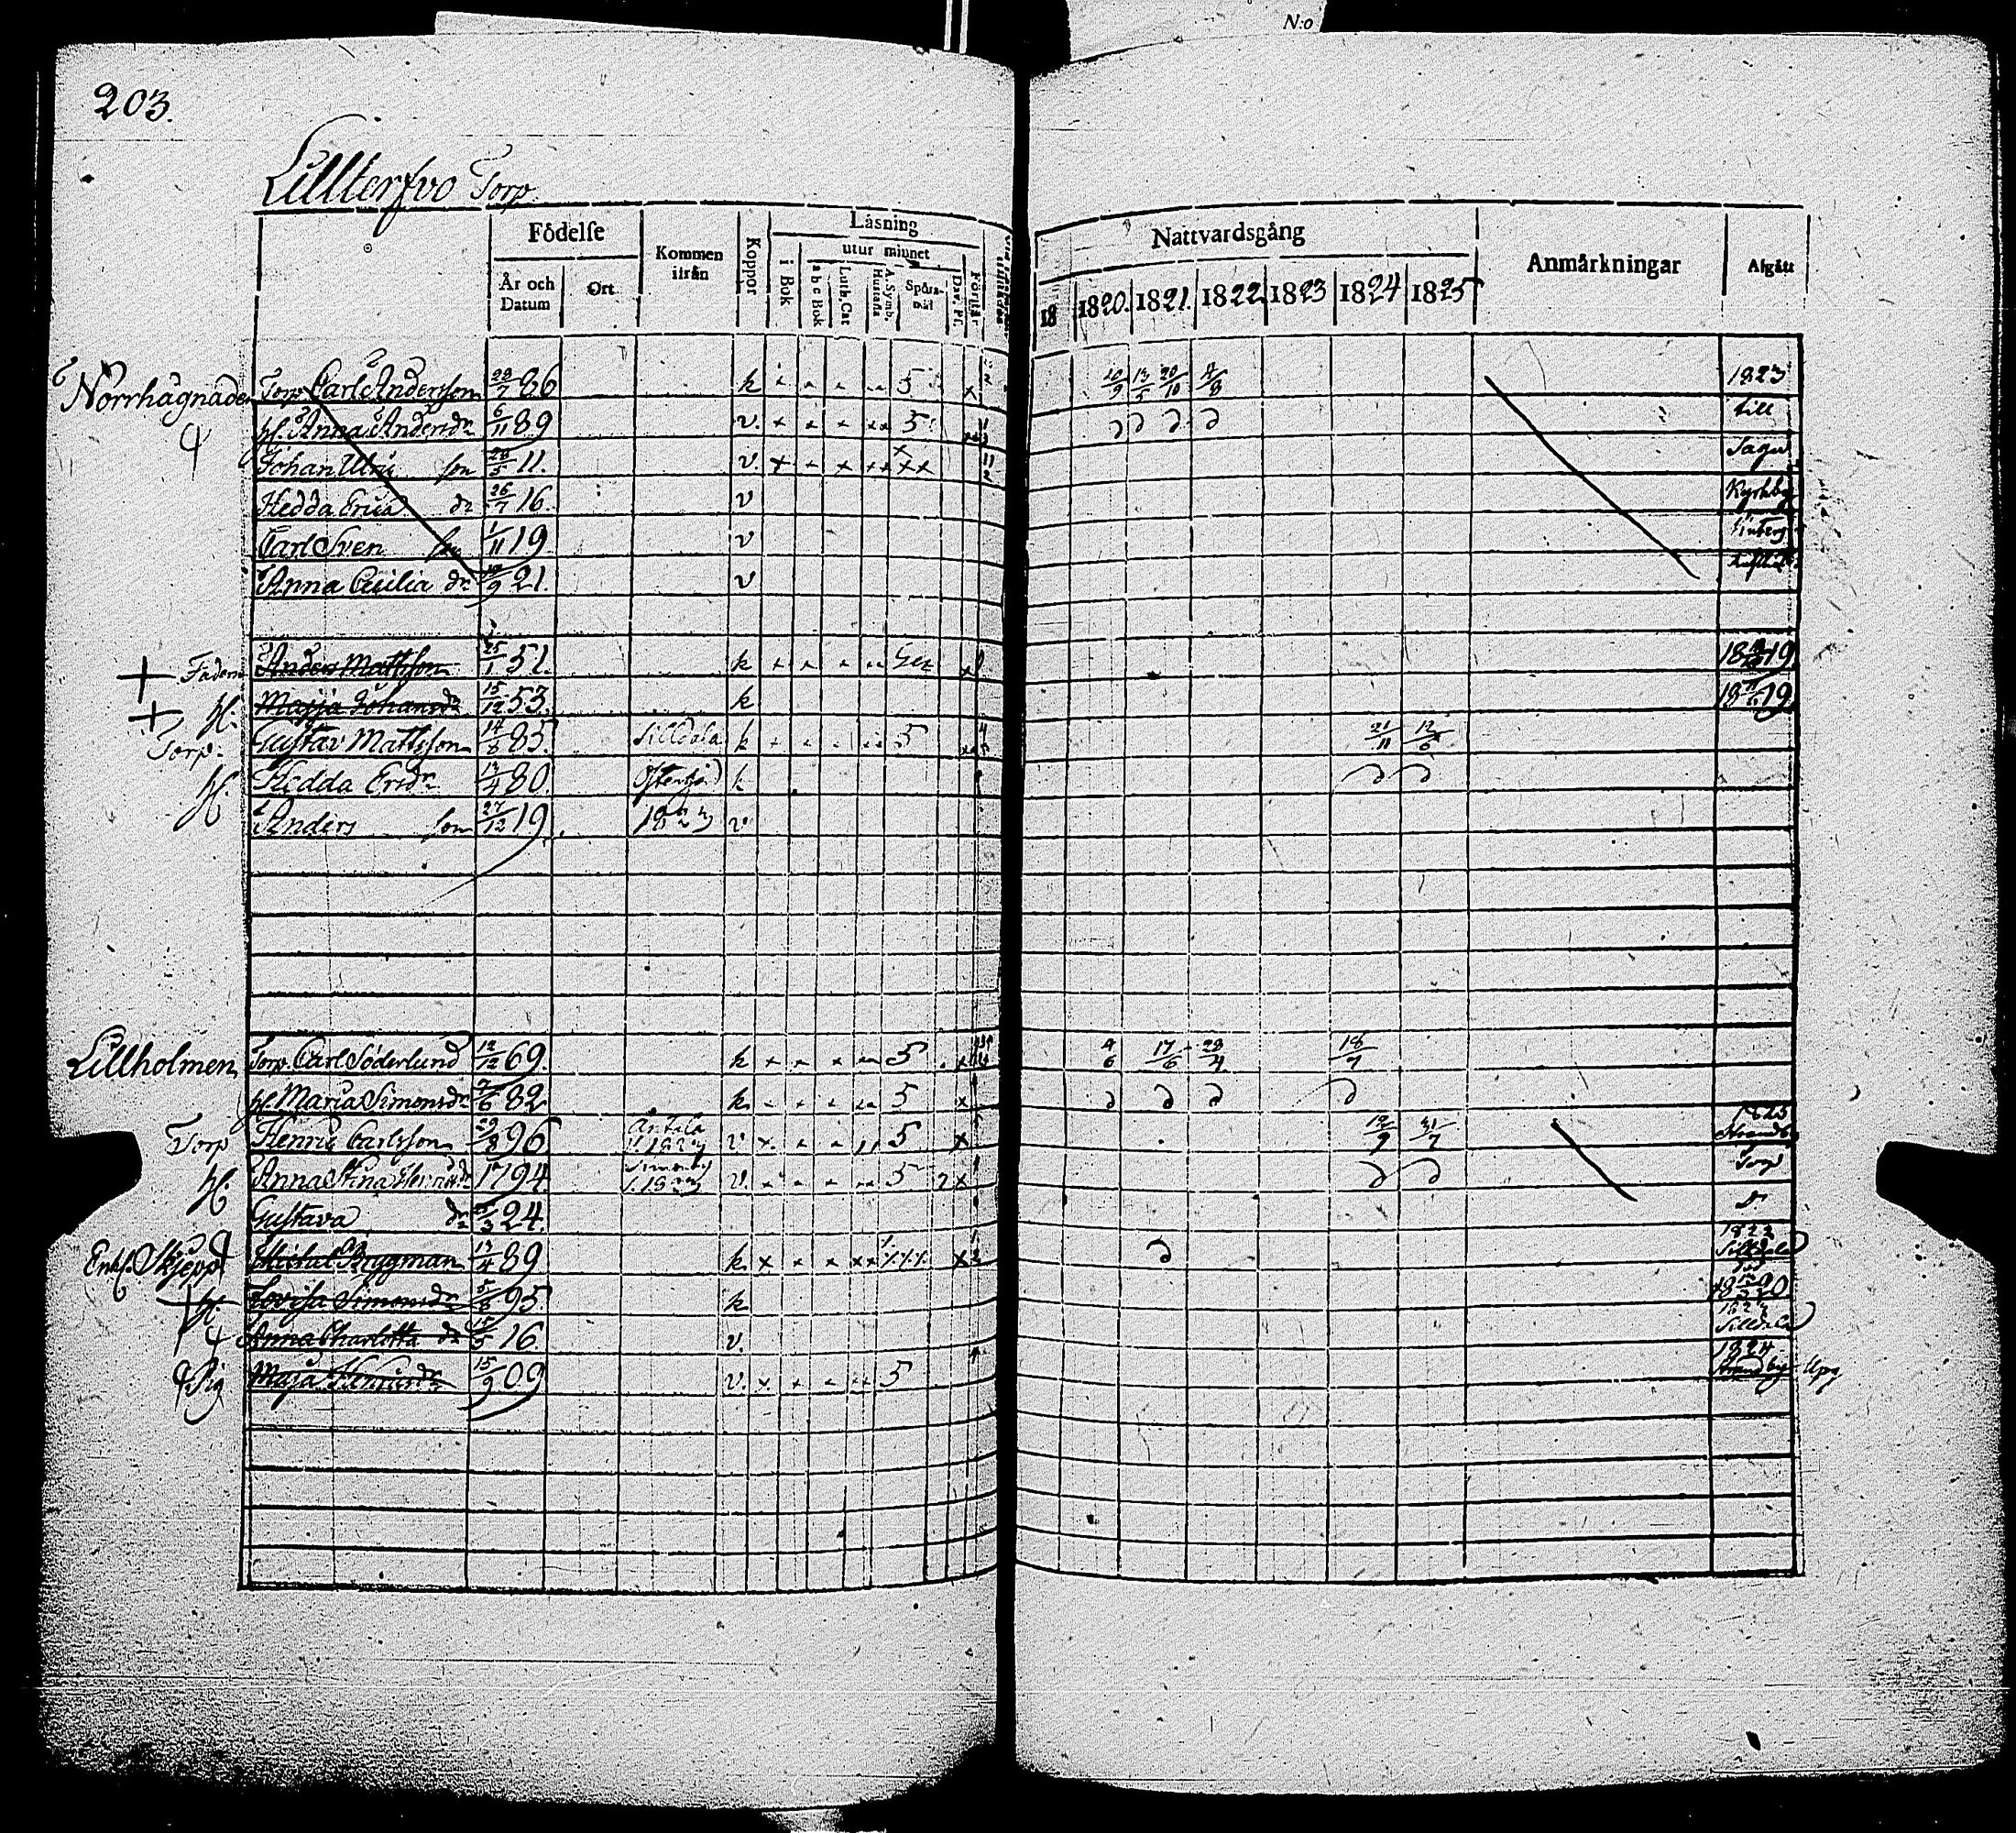 N:o
203.
Lillterfvo Torp.
Födelse
År och Datum
Ort
Kommen ifrån
Koppor
Läsning
i Bok
utur minnet
a b c Bok
Luth. Cat
A. Symb. Hustafla
Spörsmål
Dav. Ps.
Förstår
Nattvardsgång
18 1820. 1821. 1822 1823 1824 1825
Anmärkningar
Afgått
Norrhägnaden Torp. Carl Andersson 28/7 86 k 5 1823
h. Anna Andersdr 6/11 89 v. 5 till
Johan Ulric son 28/5 11. v. Sagu
Hedda Erica dr 26/7 16. v Kyrkby
Carl Sven son 1/11 19 v
Anna Cecilia dr 9 21. v
Fadern Anders Mattsson 25/1 51. k 19
H. Majja Johansdr 15/12 53. k 19
Torp. Gustav Mattsson 14/8 85 Silldala k 5 21/11 12/6
H. Hedda Ersdr 13/4 80. k
Anders son 27/12 19. 1823 v.
Lillholmen, Torp. Carl Söderlund 12/12 69. k 5 4/6 17/6 28/4 18/7
h. Maria Simonsdr 6 82. k. 5
Torp Henric Carlsson 29/8 96 Antala v 5 12/9 31/7 1825
H. Anna Stina Henricsdr 1794 Simonby v. 5 2 Torp
Gustava dr 3 24.
Enkl. Skjepp Michel Brygman 13/4 89 k. 1822 Silldala
H. Lovisa Simonsdr 5/8 95 k
Anna Charlotta dr 15/5 16. v. Silldala
Pig Maja Henricsdr 15/9 09 v. 5 1824 Strandby